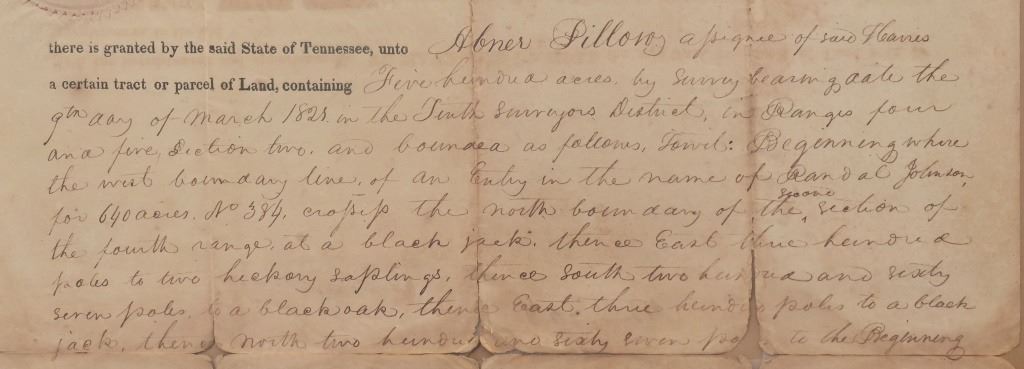 there is granted by the said State of Tennessee, unto Abner Pillow, assignee of said Harris
a certain tract or parcel of Land, containing Five hundred acres, by survey bearing date the
9th day of March 1821. in the Tenth surveyors District, in Ranges four
and five, Section two. and bounded as follows, Towit: Beginning where
the west boundary line, of an Entry in the name of Randal Johnson,
for 640 acres. No 384, crosses the north boundary of the second section of
the fourth range. at a black jack. thence East three hundred
poles to two hickory saplings, thence south two hundred and sixty
seven poles. to a black oak, thence East. three hundred poles to a black
jack, thence north two hundred and sixty seven to the Beginning